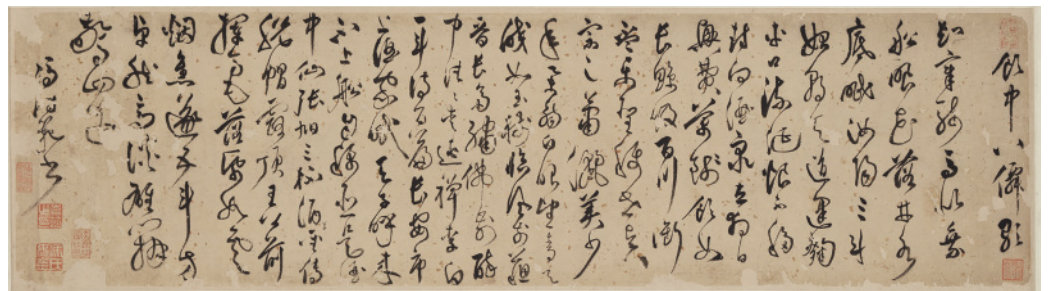 飲中八僊歌
知章騎馬似乘
船眼花落井水
底眠汝陽三斗
始朝天道逢麴
車口流涎恨不移
封向酒泉左相日
興費萬錢飲如
長鯨吸百川銜
盃樂聖稱世賢
宗之蕭灑美少
年舉觴白眼望青天
皎如玉樹臨風前蘇
晉長齋繡佛前醉
中往往愛逃禪李白
一斗詩百篇長安市
上酒家眠天子呼來
不上船自稱臣是酒
中仙張旭三杯草聖傳
脫帽露頂王公前
揮毫落紙如雲
烟焦遂五斗方
卓然高談雄辯
驚四筵